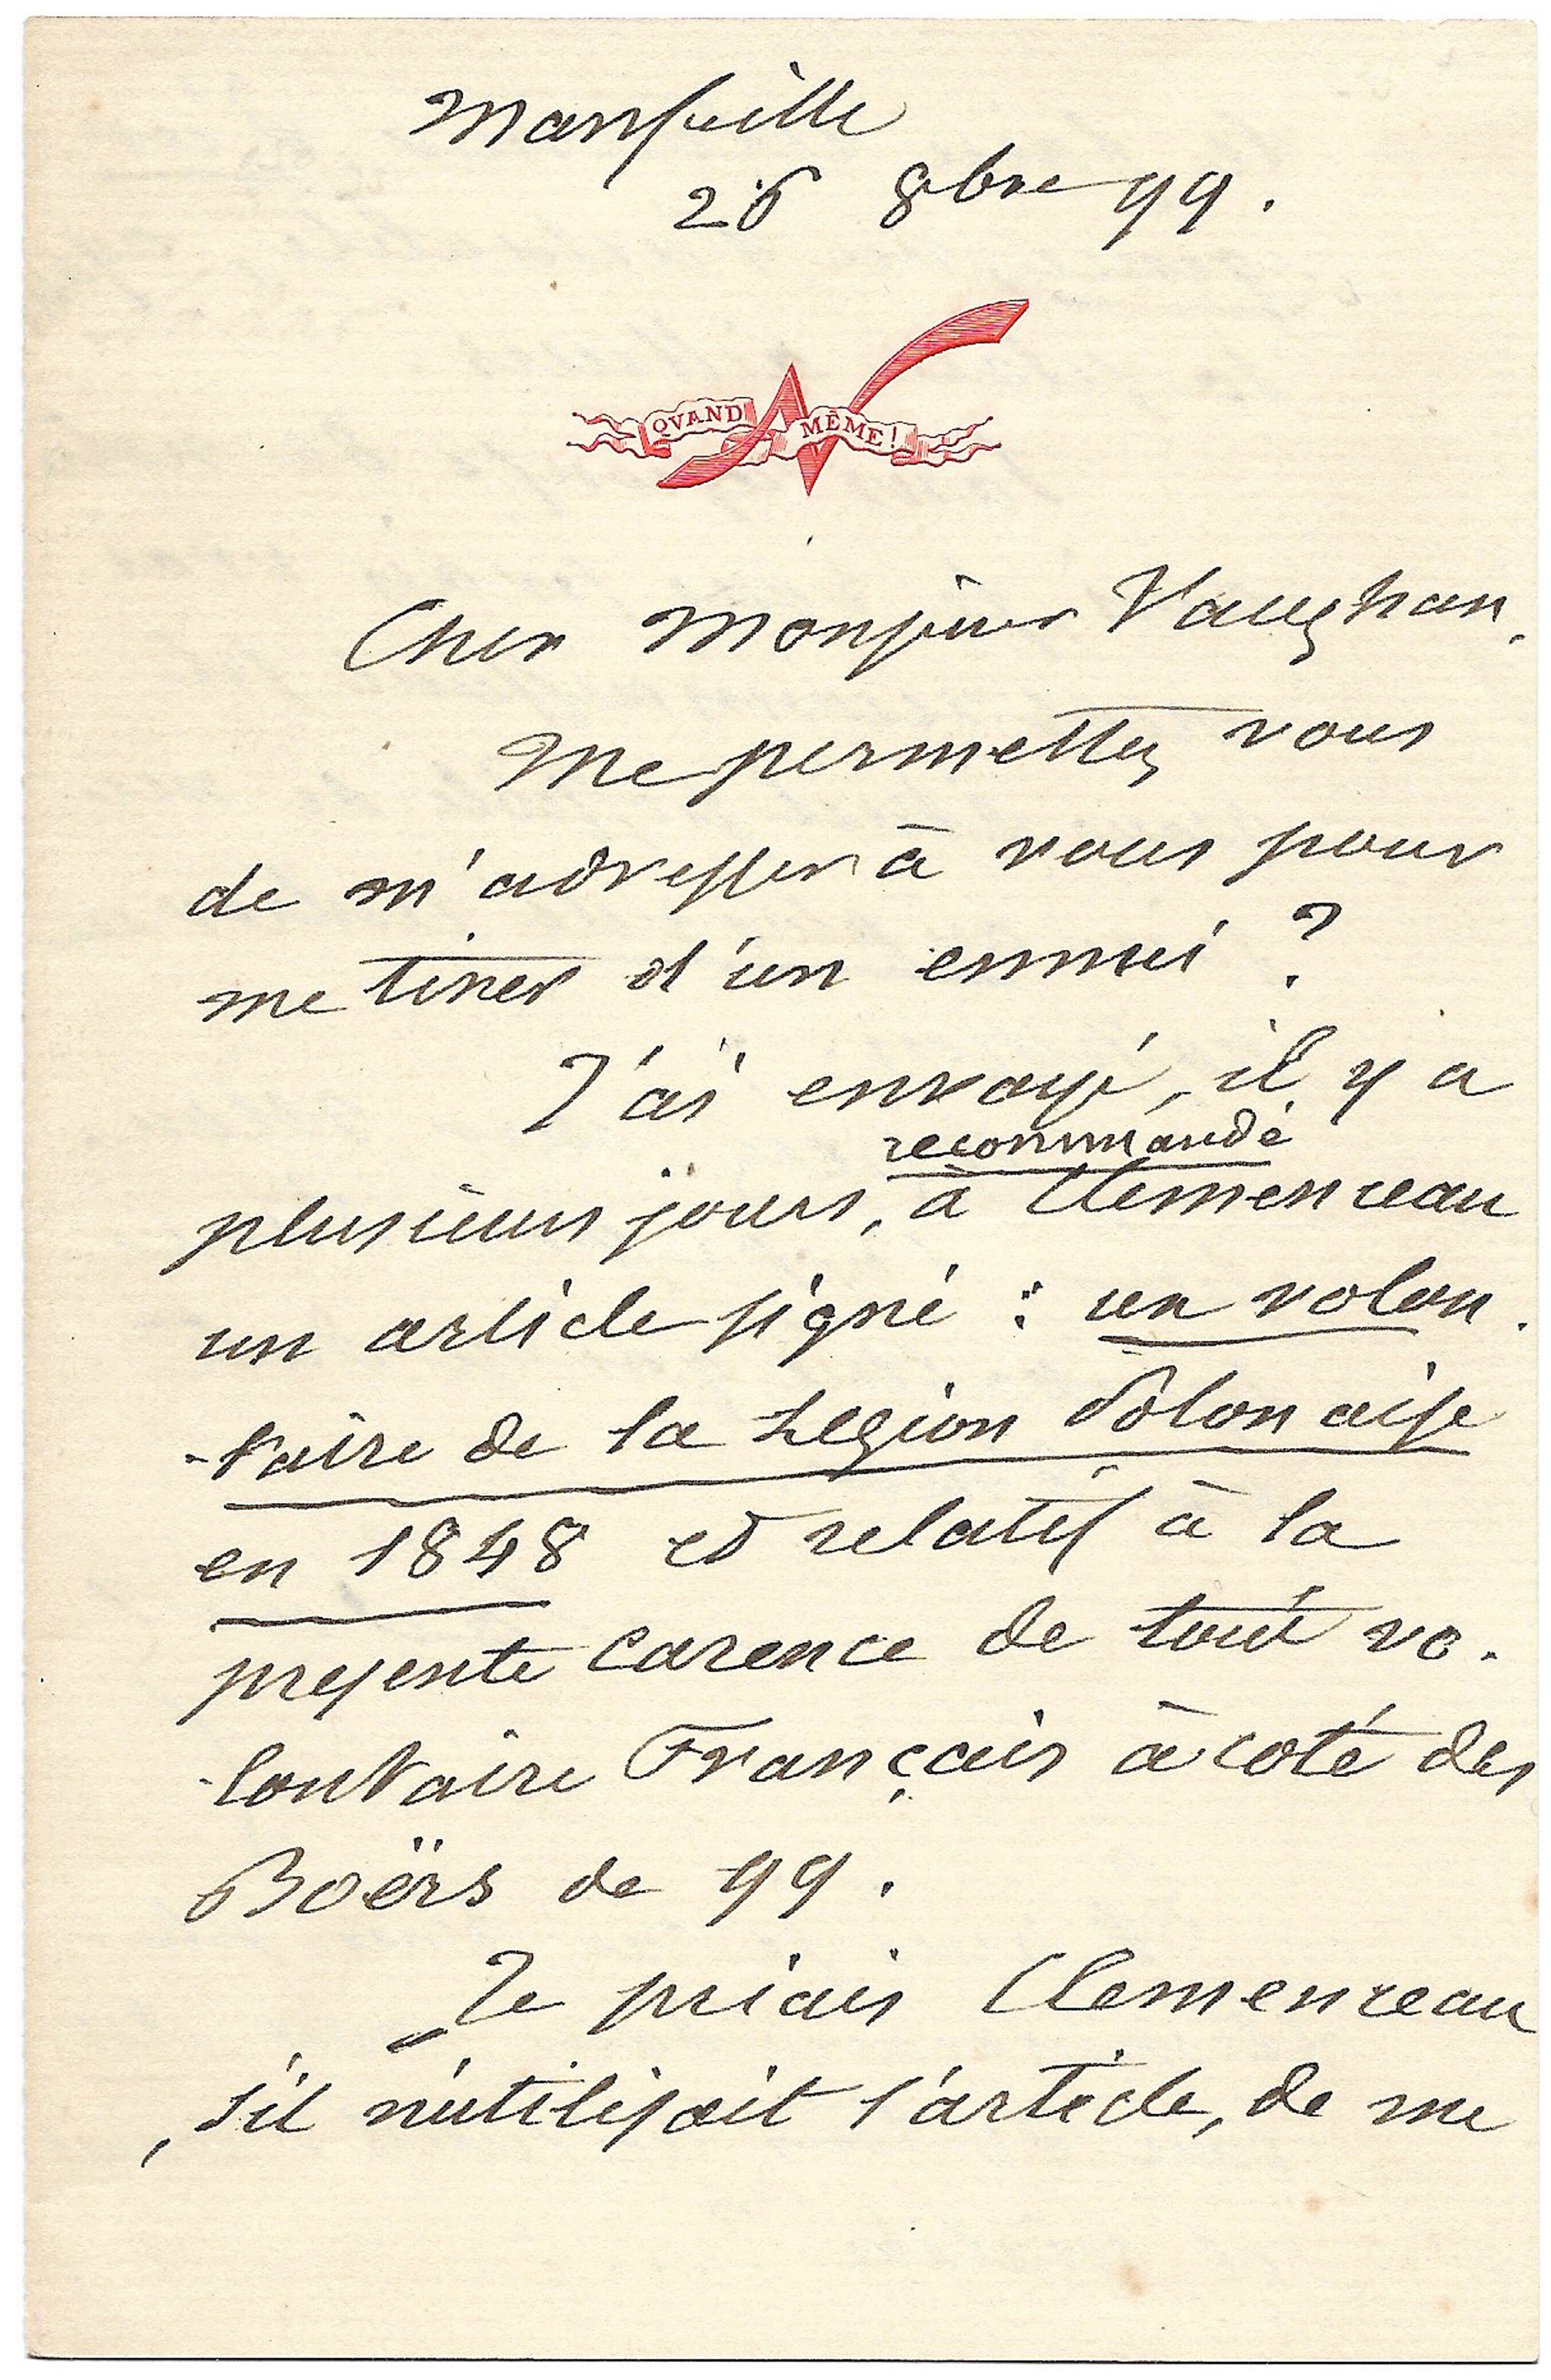 Marseille
26 8bre 99.
QVAND MÊME!
Cher Monsieur Vaughan,
Me permettez vous
de m'adresser à vous pour
me tirer d'un ennui ?
J'ai envoyé, il y a
recommandé
plusieurs jours, à Clemenceau
un article signé : un volon.
-taire de la Légion Polonaise
en 1848 et relatif à la
presente carence de tout vo.
-lontaire Français à coté des
Boërs de 99.
Je priais Clemenceau
, s'il n'utilisait l'article, de me